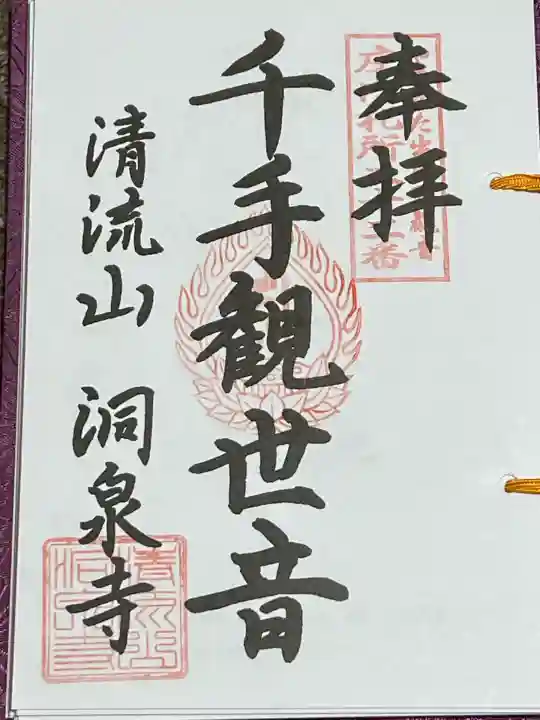 奉拝
千手観世音
清流山 洞泉寺